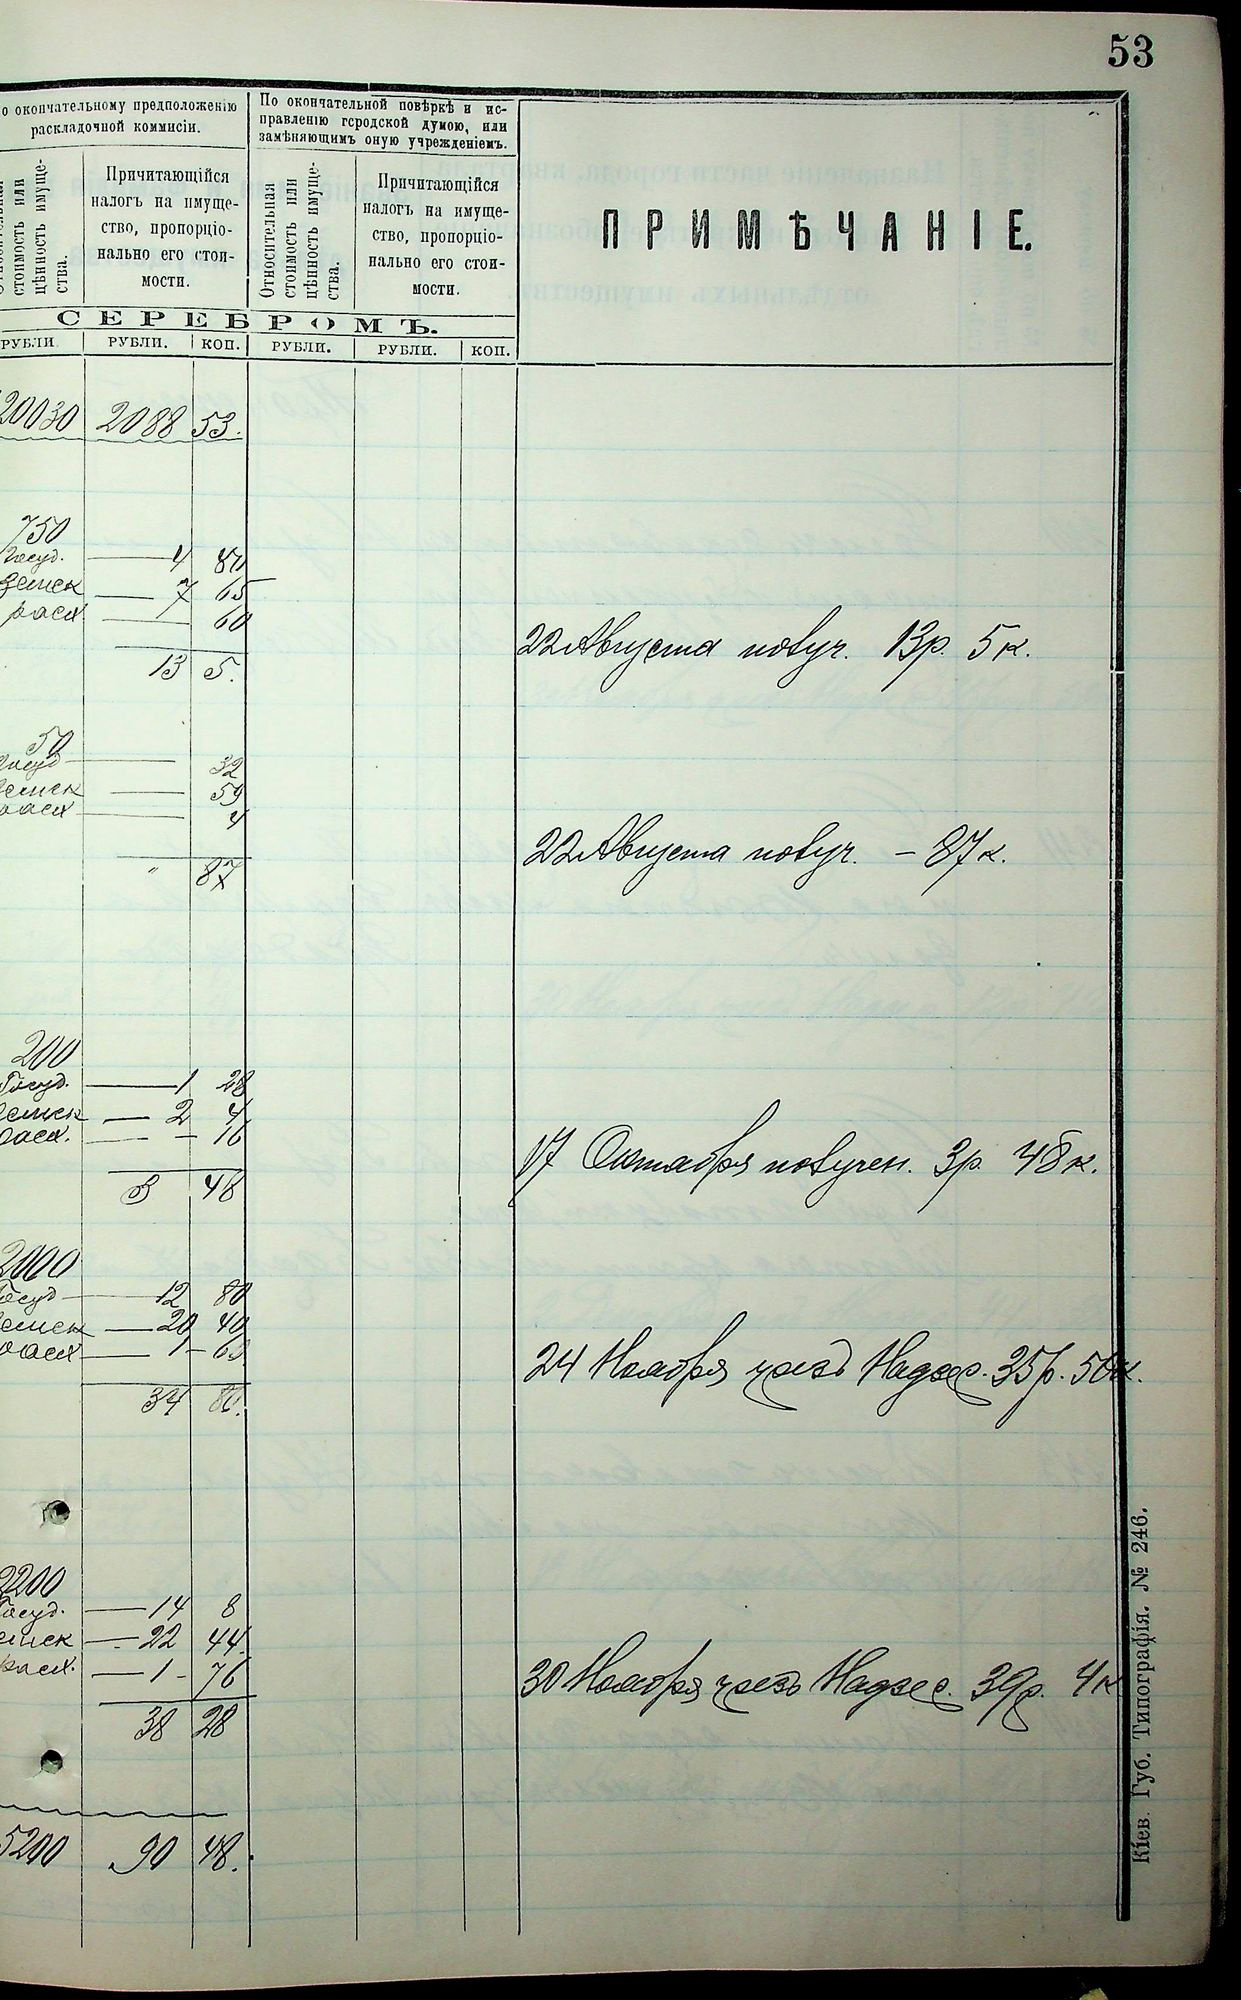 53
о окончательному предположенію
раскладочной коммисіи.
По окончательной повѣркѣ и ис-
правленію городской думою, или
замѣняющимъ оную учрежденіемъ.
стоимость или
цѣнность имуще-
ства.
Причитающійся
налогъ на имуще-
ство, пропорціо-
нально его стои-
мости.
Относительная
стоимость или
цѣнность имуще-
ства.
Причитающійся
налогъ на имуще-
ство, пропорціо-
нально его стои-
мости.
ПРИМѢЧАНІЕ.
СЕРЕБРОМЪ.
РУБЛИ РУБЛИ. КОП. РУБЛИ. РУБЛИ. КОП.
20030 2088 53.
750
Госуд. — 4 80
Земск — 7 65
расх — 60
13 5.
22 Августа получ. 13р. 5 к.
50
Госуд — 32
Земск — 59
расх — 4
" 87
22 Августа получ. – 87 к.
200
Госуд. — 1 28
Земск — 2 4
расх. — – 16
3 48
17 Октября получен. 3р. 48 к.
2000
Госуд — 12 80
Земск — 20 40
расх — 1 – 60
34 80.
24 Ноября чрезъ Надзес. 35р. 50к.
2200
Госуд. — 14 8
Земск — 22 44.
расх. — 1 - 76
38 28
30 Ноября чрезъ Надзес. 39р. 4к
5200 90 48.
Кіев. Губ. Типографія. № 246.